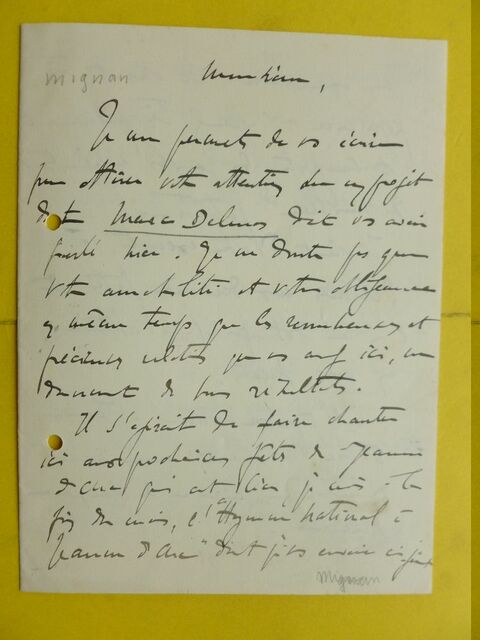 mignan
Monsieur,
Je me permets de vous écrire
pour attirer votre attention sur un projet
dont Marc Delmas doit vous avoir
parlé hier. Je ne doute pas que
votre amabilité et votre obligeance
en même temps que les nombreuses et
précieuses relations que vous avez ici, me
donnent de bons résultats.
Il s'agirait de faire chanter
ici aux prochaines fêtes de Jeanne
d'Arc qui ont lieu je crois à la
fin du mois, l'"Hymne National à
Jeanne d'Arc" dont j'ai
Mignan